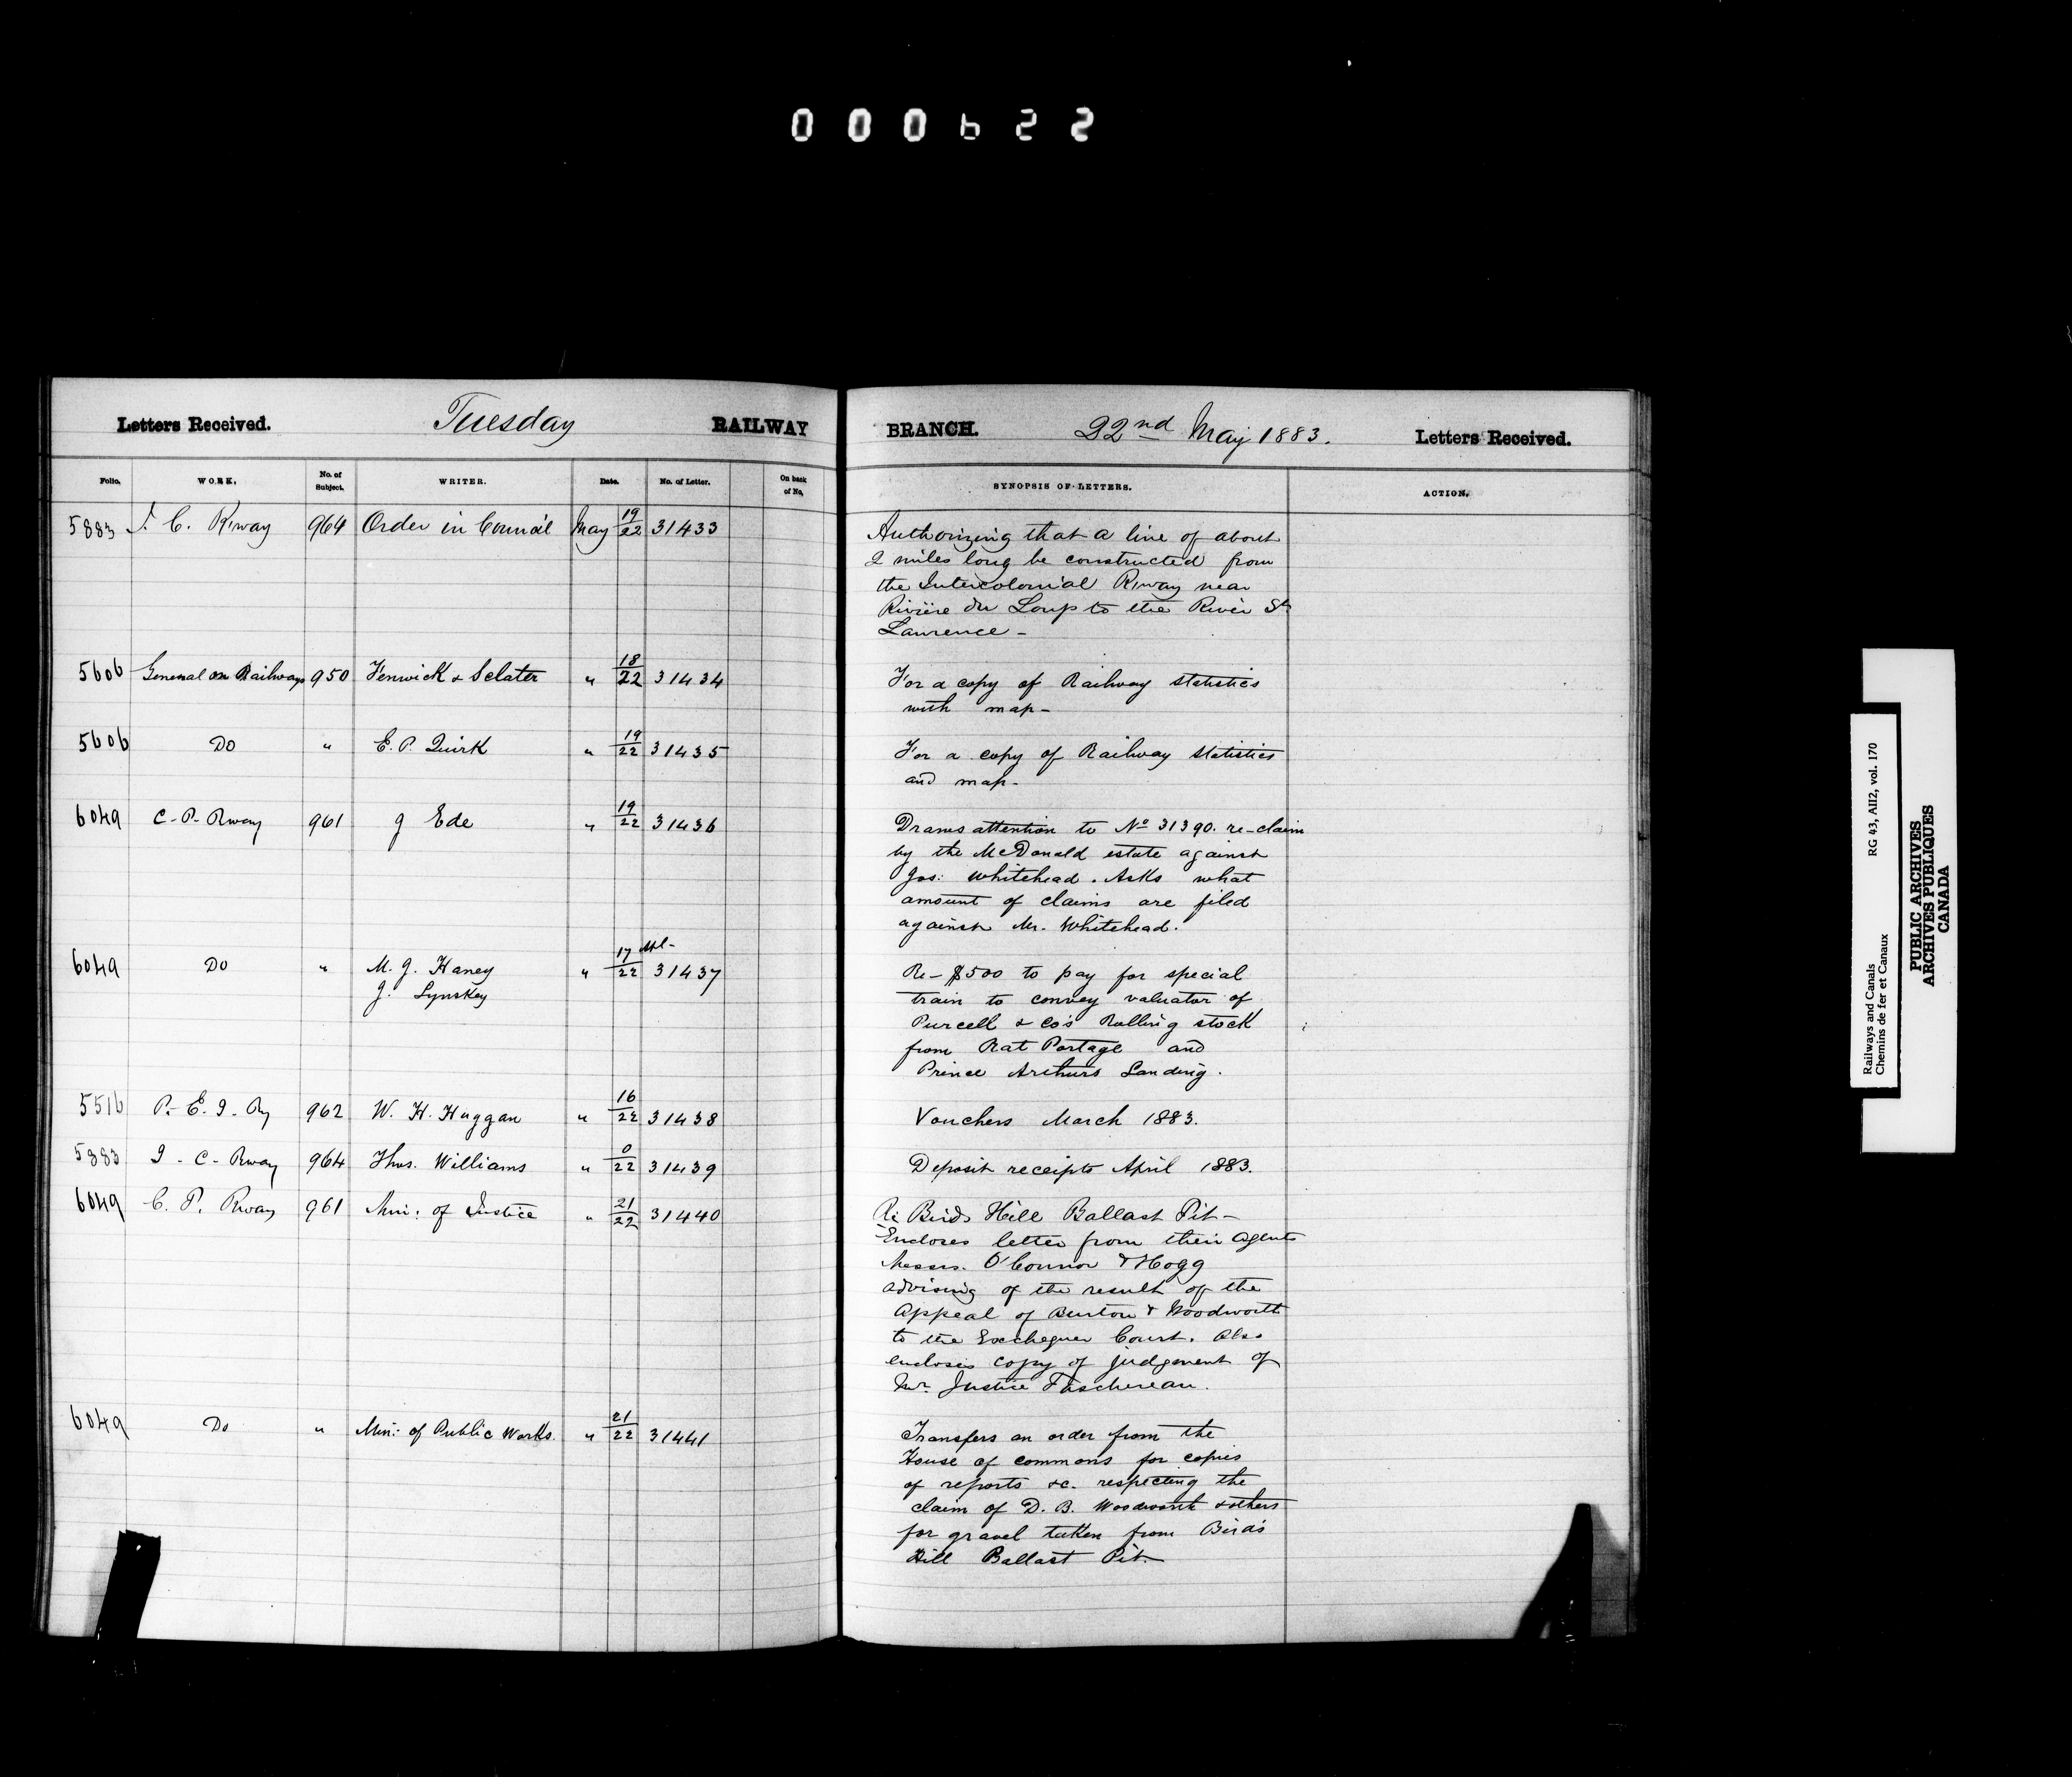 000622
Letters Received. Tuesday RAILWAY BRANCH. 22nd May 1883. Letters Received.
Folio. WORK. No. of Subject. WRITER. Date. No. of Letter. On back of No. SYNOPSIS OF LETTERS. ACTION.
5883 I. C. R'way 964 Order in Council May 19/22 31433
Authorizing that a line of about
2 miles long be constructed from
the Intercolonial R'way near
Rivière du Loup to the River St
Lawrence -
5606 General on Railways 950 Fenwick & Sclater " 18/22 31434
For a copy of Railway statistics
with map -
5606 Do " E. P. Quirk " 19/22 31435
For a copy of Railway statistics
and map -
6049 C - P - Rway 961 J Ede " 19/22 31436
Draws attention to No 31390. re - claim
by the McDonald estate against
Jos: Whitehead. Asks what
amount of claims are filed
against Mr. Whitehead.
6049 Do " M. J. Haney " 17/22 31437
J. Lynskey
Re - $500 to pay for special
train to convey valuator of
Purcell & Co's Rolling stock
from Rat Portage and
Prince Arthurs Landing.
5516 P. E. I. Ry 962 W. H. Huggan " 16/22 31438
Vouchers March 1883.
5883 I - C - Rway 964 Thos. Williams " 0/22 31439
Deposit receipts April 1883.
6049 C. P. Rway 961 Min: of Justice " 21/22 31440
Re Birds Hill Ballast Pit -
Encloses letter from their agents
Messrs. O'Connor & Hogg
advising of the result of the
Appeal of Burton & Woodworth
to the Exchequer Court. Also
encloses copy of judgement of
Mr. Justice Taschereau.
6049 Do " Min: of Public Works. " 21/22 31441
Transfers an order from the
House of commons for copies
of reports &c. respecting the
claim of D. B. Woodworth & others
for gravel taken from Bird's
Hill Ballast Pit -
Railways and Canals RG 43, AII2, vol. 170
Chemins de fer et Canaux
PUBLIC ARCHIVES
ARCHIVES PUBLIQUES
CANADA